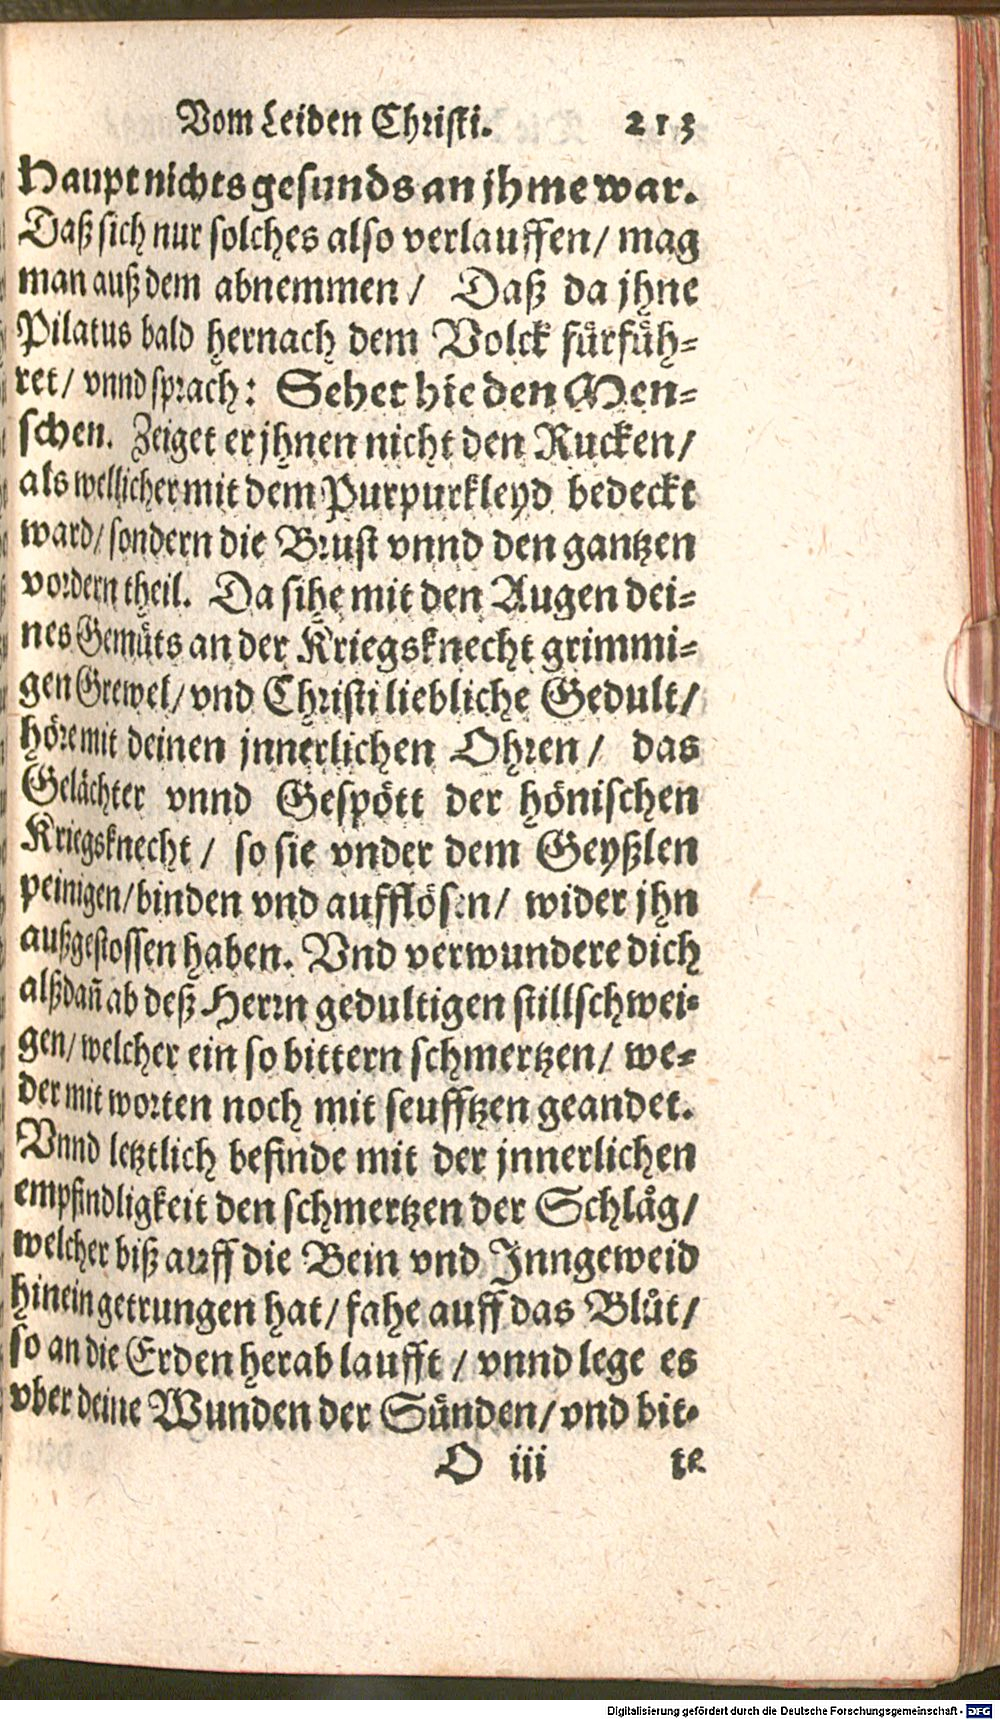 Vom Leiden Christi. 213
Haupt nichts gesunds an jhme war.
Daß sich nur solches also verlauffen/ mag
man auß dem abnemmen/ Daß da jhne
Pilatus bald hernach dem Volck fürfüh-
ret/ vnnd sprach: Sehet hie den Men-
schen. Zeiget er jhnen nicht den Rucken/
als wellicher mit dem Purpurkleyd bedeckt
ward/ sondern die Brust vnnd den gantzen
vordern theil. Da sihe mit den Augen dei-
nes Gemüts an der Kriegsknecht grimmi-
gen Grewel/ vnd Christi liebliche Gedult/
höre mit deinen jnnerlichen Ohren/ das
Gelächter vnnd Gespött der hönischen
Kriegsknecht/ so sie vnder dem Geyßlen
peinigen/ binden vnd aufflösen/ wider jhn
außgestossen haben. Vnd verwundere dich
alßdañ ab deß Herrn gedultigen stillschwei-
gen/ welcher ein so bittern schmertzen/ we-
der mit worten noch mit seufftzen geandet.
Vnnd letztlich befinde mit der jnnerlichen
empfindligkeit den schmertzen der Schlåg/
welcher biß auff die Bein vnd Jnngeweid
hinein getrungen hat/ fahe auff das Blůt/
so an die Erden herab laufft/ vnnd lege es
vber deine Wunden der Sünden/ vnd bit-
O iii te
Digitalisierung gefördert durch die Deutsche Forschungsgemeinschaft - DFG